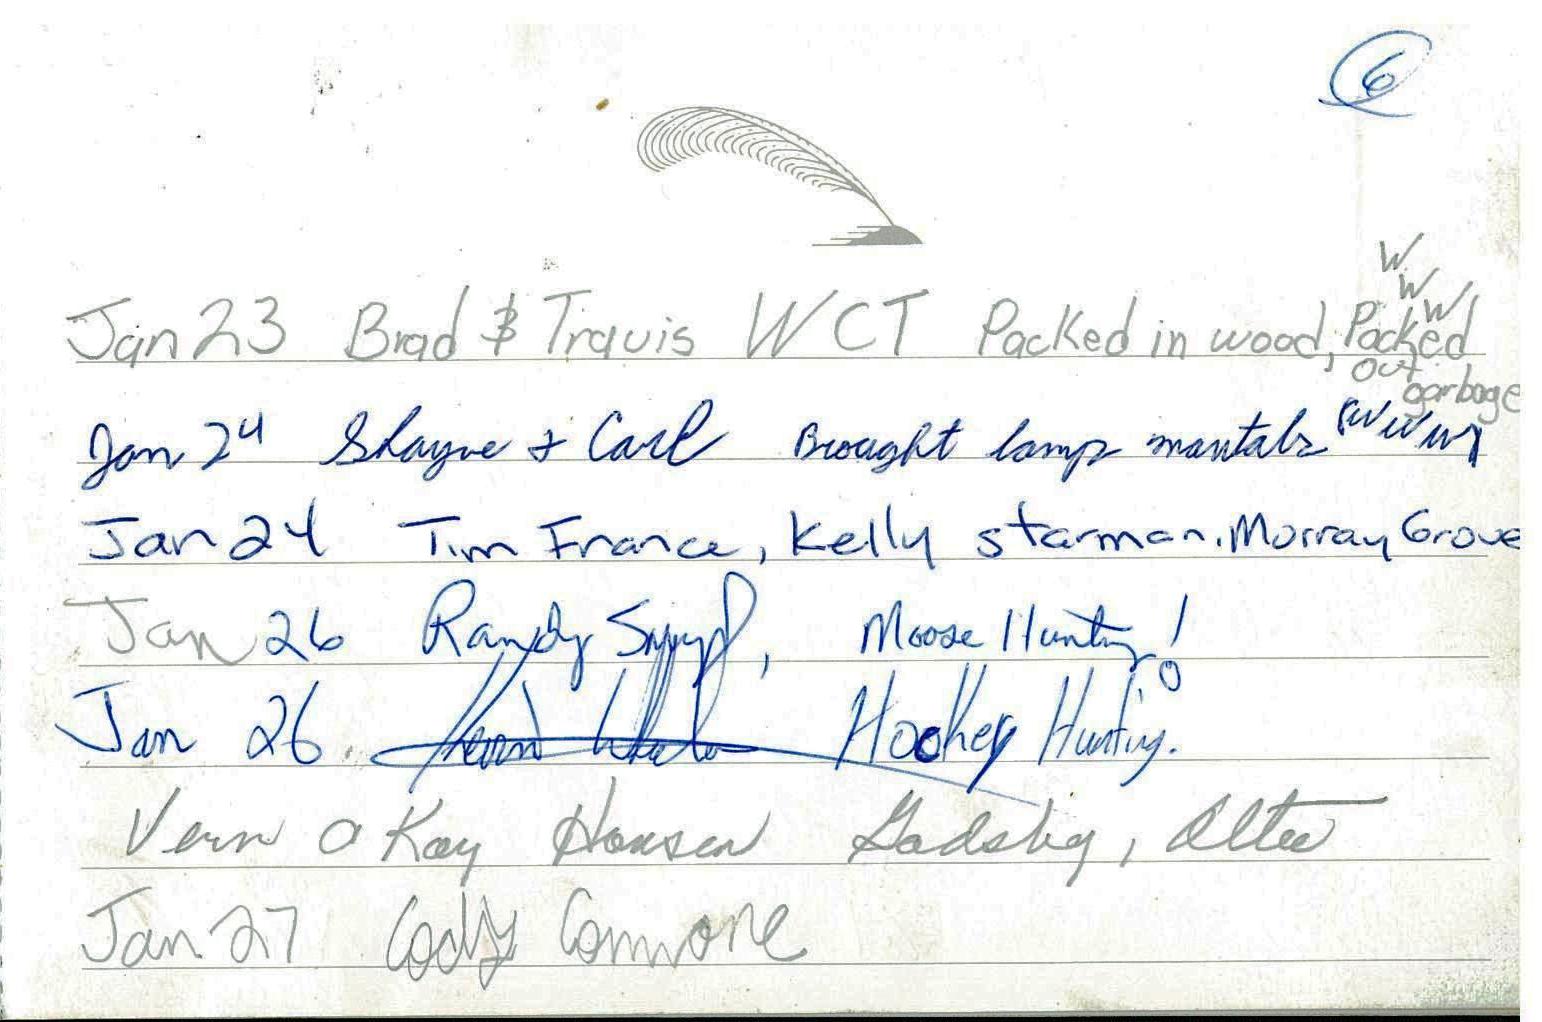 6
W
W
W
Jan 23 Brad & Travis WCT Packed in wood, Packed
out
garbage
Jan 24 Shayne + Carl Brought lamp mantals (WWW)
Jan 24 Tim France, Kelly Starman. Murray Grove
Jan 26 Randy, Moose Hunting!
Jan 26. Hockey Hunting.
Vern & Kay Hansen Gadsby, Alta
Jan 27 Cody